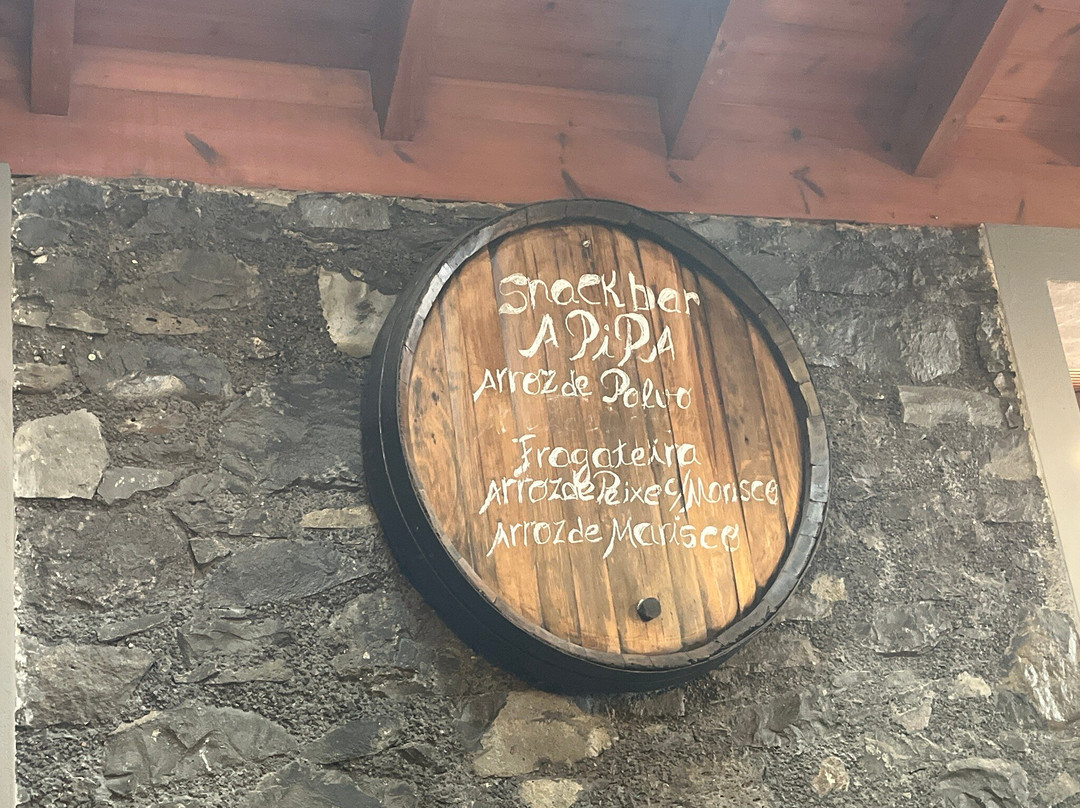 Snack bar
A PiPA
Arroz de Polvo
Fragateira
Arroz de Peixe c/Marisco
Arroz de Marisco